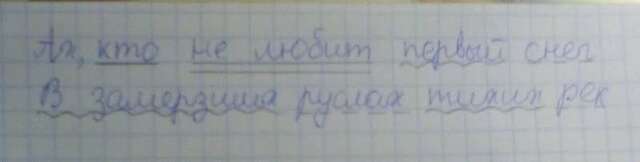 Ах, кто не любит первый снег
В замерзших руслах тихих рек